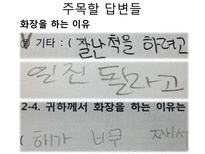 주목할 답변들
화장을 하는 이유
기타 : ( 잘난척을 하려고
일진 될라고
2-4. 귀하께서 화장을 하는 이유는
( 해가 너무 째서